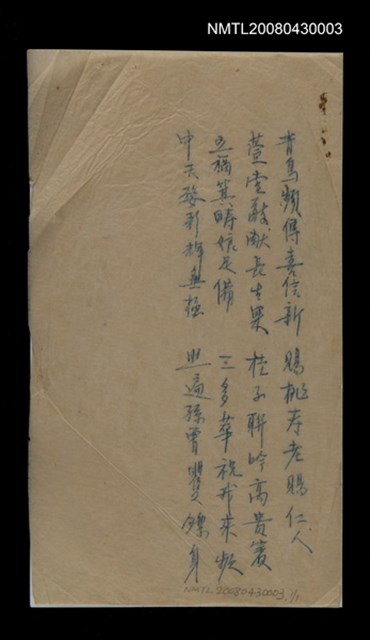 NMTL20080430003
青鳥頻傳喜信新 賜桃寿老賜仁人
萱堂敬献長生果 桂子聯吟高貴賓
五福箕疇足備 三多華祝我來頻
中天婺彩輝無極 照遍孫曾矍鑠身
NMTL20080430003, 1/1